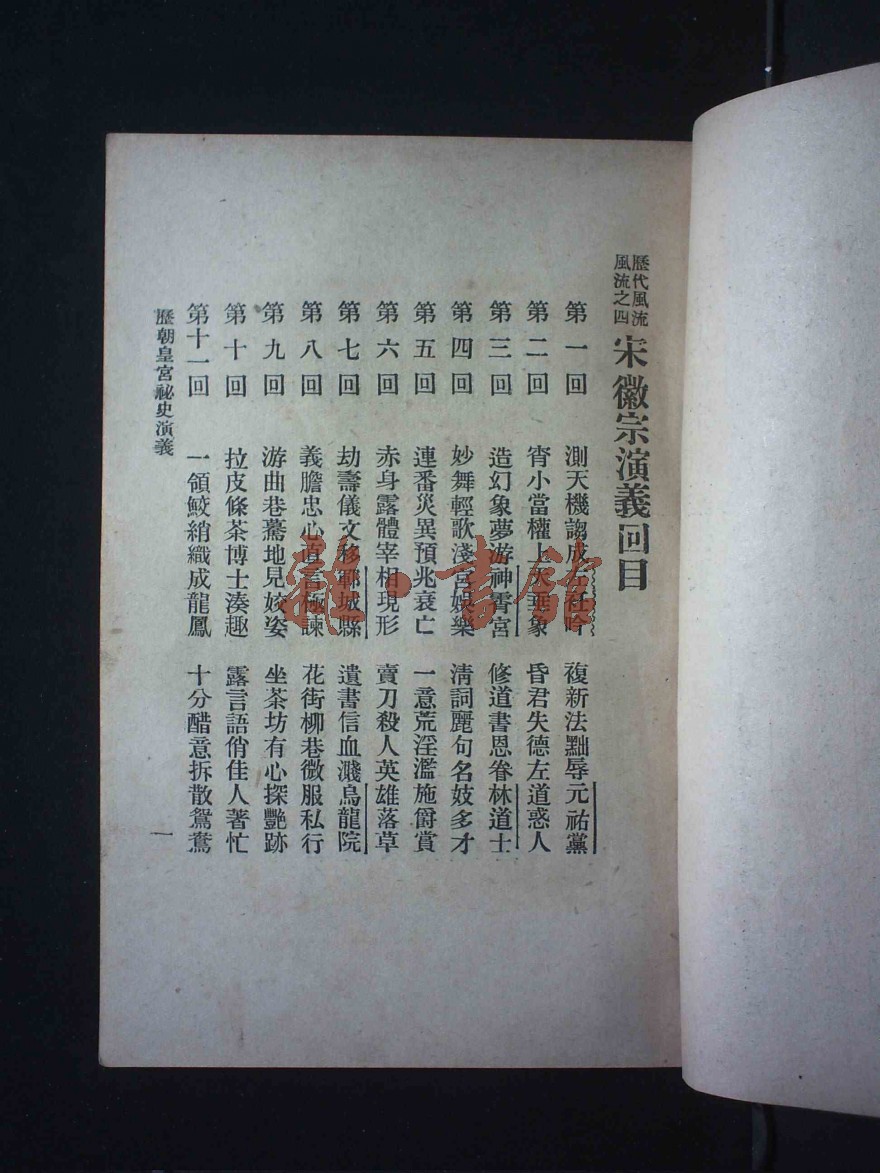 歷代風流
風流之四
宋徽宗演義回目
第一回 測天機謅成左衽吟 複新法黜辱元祐黨
第二回 宵小當權上天垂象 昏君失德左道惑人
第三回 造幻象夢游神霄宮 修道書恩眷林道士
第四回 妙舞輕歌淺宮娛樂 清詞麗句名妓多才
第五回 連番災異預兆衰亡 一意荒淫濫施爵賞
第六回 赤身露體宰相現形 賣刀殺人英雄落草
第七回 劫壽儀文移鄆城縣 遺書信血濺烏龍院
第八回 義膽忠心直言極諫 花街柳巷微服私行
第九回 游曲巷驀地見姣姿 坐茶坊有心探艷跡
第十回 拉皮條茶博士湊趣 露言語俏佳人著忙
第十一回 一領鮫綃織成龍鳳 十分醋意拆散鴛鴦
歷朝皇宮祕史演義
一
龍·書館